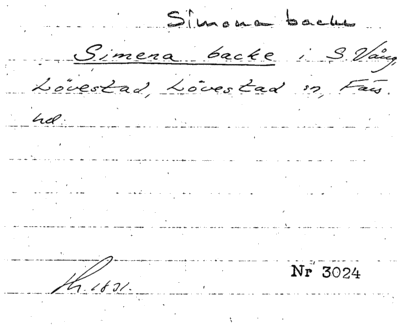 Simona backe
Simena backe i S. Vång,
Lövestad, Lövestad sn, Färs
hd.
Nr 3024
h. 1831.